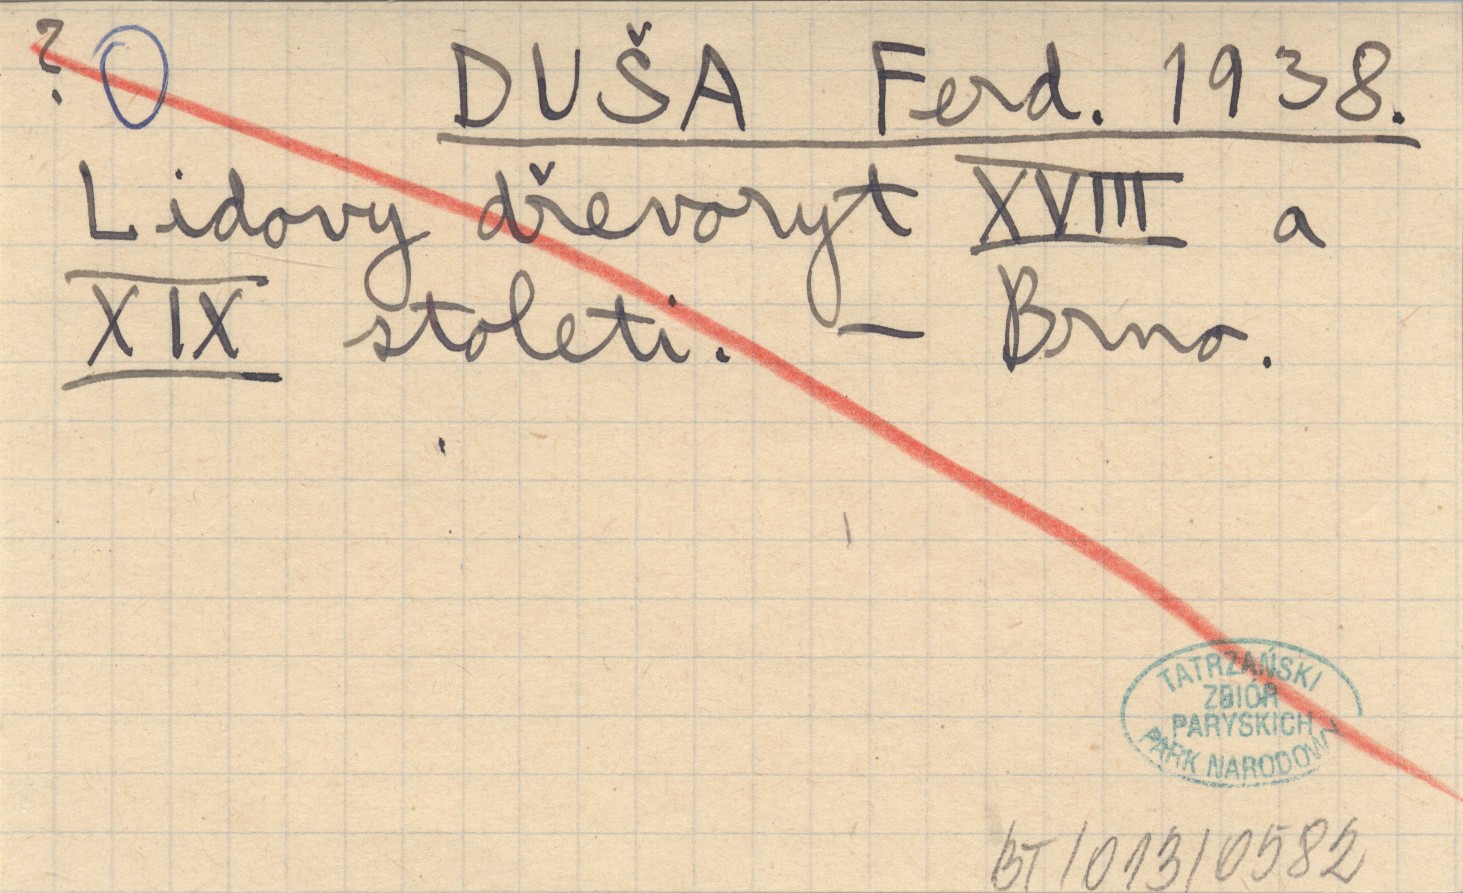 ? O DUŠA Ferd. 1938.
Lidovy dřevoryt XVIII a
XIX stoleti. — Brno.
TATRZAŃSKI
ZBIÓR
PARYSKICH
PARK NARODOWY
BT/013/0582